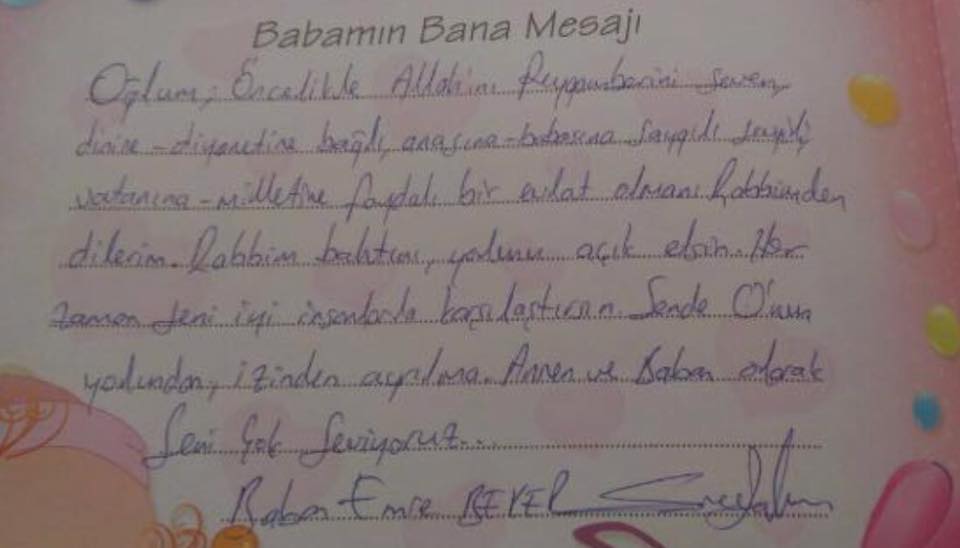 Babamın Bana Mesajı
Oğlum; Öncelikle Allahını Peygamberini seven,
dinine - diyanetine bağlı, anasına - babasına saygılı sevgili,
vatanına - milletine faydalı bir evlat olmanı Rabbimden
dilerim. Rabbim bahtını, yolunu açık etsin. Her
zaman seni iyi insanlarla karşılaştırsın. Sende O'nun
yolundan, izinden ayrılma. Annen ve Baban olarak
Seni Çok Seviyoruz...
Baban Emre